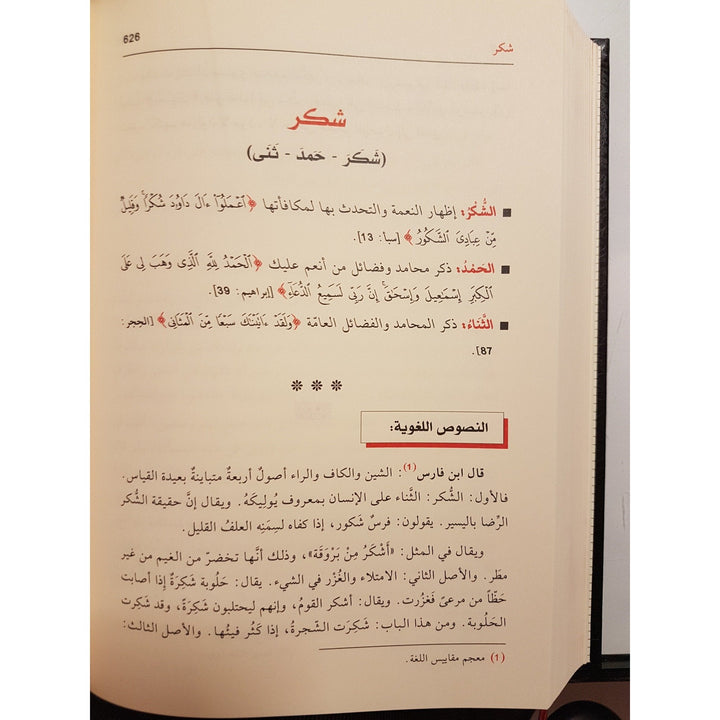 626
شكر
شكر
(شَكَرَ - حَمدَ - ثَنَى)
■ الشُّكْرُ: إظهار النعمة والتحدث بها لمكافأتها ﴿اَعْمَلُوٓاْ ءَالَ دَاوُۥدَ شُكْرٗاۚ وَقَلِيلٞ
مِّنْ عِبَادِيَ اَلشَّكُورُ﴾ [سبأ: 13].
■ الحَمْدُ: ذكر محامد وفضائل من أنعم عليك ﴿اَلْحَمْدُ لِلَّهِ اِلَّذِي وَهَبَ لِي عَلَى
اَلْكِبَرِ إِسْمَٰعِيلَ وَإِسْحَٰقَۚ إِنَّ رَبِّي لَسَمِيعُ اُلدُّعَآءِ﴾ [إبراهيم: 39].
■ الثَّنَاءُ: ذكر المحامد والفضائل العامّة ﴿وَلَقَدْ ءَاتَيْنَٰكَ سَبْعٗا مِّنَ اَلْمَثَانِي﴾ [الحِجر:
87].
* * *
النصوص اللغوية:
قال ابن فارس(1): الشين والكاف والراء أصولٌ أربعةٌ متباينةٌ بعيدة القياس.
فالأول: الشُّكر: الثَّناء على الإنسان بمعروف يُولِيكَهُ. ويقال إنَّ حقيقة الشُّكر
الرِّضا باليسير. يقولون: فرسٌ شَكور، إذا كفاه لسِمَنِه العلفُ القليل.
ويقال في المثل: «أَشْكَرُ مِنْ بَرْوَقَة»، وذلك أنَّها تخضرّ من الغيم من غير
مطر. والأصل الثاني: الامتلاء والغُزْر في الشيء. يقال: حَلُوبة شَكِرَةٌ إذا أصابت
حَظًّا من مرعىً فَغزُرت. ويقال: أشكر القومُ، وإنهم ليحتلبون شَكِرَةً، وقد شَكِرت
الحَلُوبة. ومن هذا الباب: شَكِرَت الشَّجرةُ، إذا كَثُر فيئُها. والأصل الثالث:
(1) معجم مقاييس اللغة.